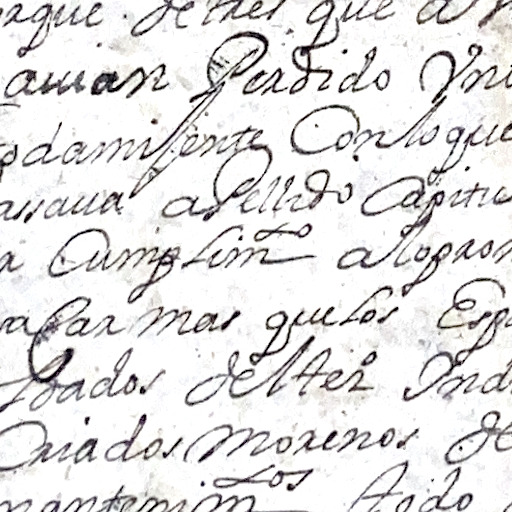 rque detres que a
auian Perdido Yn
odamigente Conloque
assaua apellido Capitu
Cumplimto alopron
afar mas quelos Esp
dados del terº Ind
Criados morenos de
mantenimtos todo